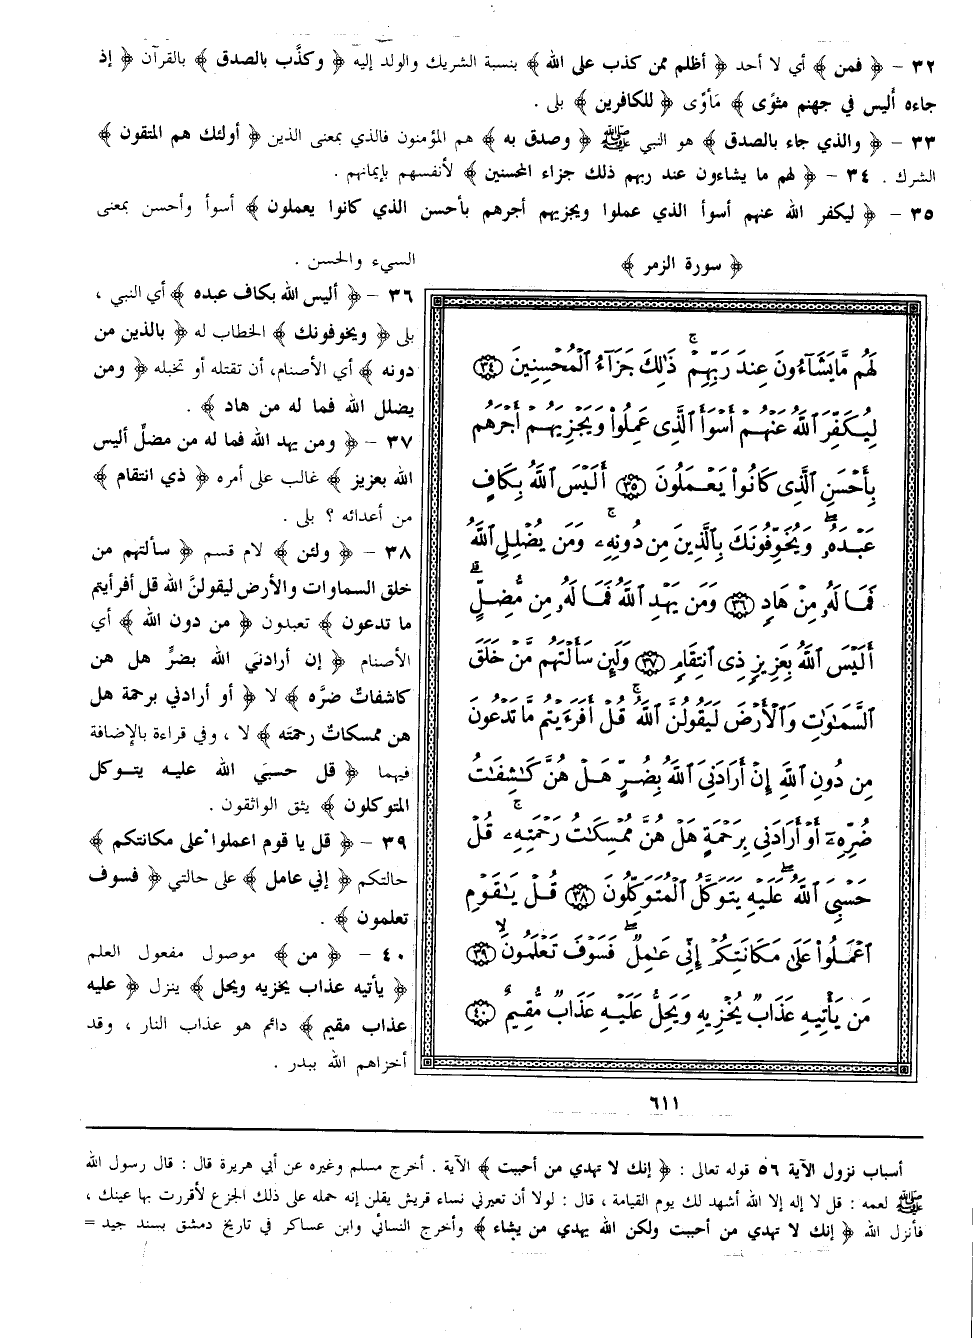 ٣٢ - ﴿ فمن ﴾ أي لا أحد ﴿ أظلم ممن كذب على الله ﴾ بنسبة الشريك والولد إليه ﴿ وكذَّب بالصدق ﴾ بالقرآن ﴿ إذ
جاءه أليس في جهنم مثوًى ﴾ مأوًى ﴿ للكافرين ﴾ بلى .
٣٣ - ﴿ والذي جاء بالصدق ﴾ هو النبي ﷺ ﴿ وصدق به ﴾ هم المؤمنون فالذي بمعنى الذين ﴿ أولئك هم المتقون ﴾
الشرك . ٣٤ - ﴿ لهم ما يشاءون عند ربهم ذلك جزاء المحسنين ﴾ لأنفسهم بإيمانهم .
٣٥ - ﴿ ليكفر الله عنهم أسوأ الذي عملوا ويجزيهم أجرهم بأحسن الذي كانوا يعملون ﴾ أسوأ وأحسن بمعنى
السيء والحسن .
٣٦ - ﴿ أليس الله بكاف عبده ﴾ أي النبي ،
بلى ﴿ ويخوفونك ﴾ الخطاب له ﴿ بالذين من
دونه ﴾ أي الأصنام، أن تقتله أو تخبله ﴿ ومن
يضلل الله فما له من هاد ﴾ .
٣٧ - ﴿ ومن يهد الله فما له من مضلٍّ أليس
الله بعزيز ﴾ غالب على أمره ﴿ ذي انتقام ﴾
من أعدائه ؟ بلى .
٣٨ - ﴿ ولئن ﴾ لام قسم ﴿ سألتهم من
خلق السماوات والأرض ليقولنَّ الله قل أفرأيتم
ما تدعون ﴾ تعبدون ﴿ من دون الله ﴾ أي
الأصنام ﴿ إن أرادنيَ الله بضرٍّ هل هن
كاشفاتٌ ضرَّه ﴾ لا ﴿ أو أرادني برحمة هل
هن ممسكاتٌ رحمتَه ﴾ لا ، وفي قراءة بالإضافة
فيهما ﴿ قل حسبيَ الله عليه يتوكل
المتوكلون ﴾ يثق الواثقون .
٣٩ - ﴿ قل يا قوم اعملوا على مكانتكم ﴾
حالتكم ﴿ إني عامل ﴾ على حالتي ﴿ فسوف
تعلمون ﴾ .
٤٠ - ﴿ من ﴾ موصول مفعول العلم
﴿ يأتيه عذاب يخزيه ويحل ﴾ ينزل ﴿ عليه
عذاب مقيم ﴾ دائم هو عذاب النار ، وقد
أخزاهم الله ببدر .
﴿ سورة الزمر ﴾
لَهُم مَّا يَشَآءُونَ عِندَ رَبِّهِمْ ۚ ذَٰلِكَ جَزَآءُ ٱلْمُحْسِنِينَ ٣٤
لِيُكَفِّرَ ٱللَّهُ عَنْهُمْ أَسْوَأَ ٱلَّذِى عَمِلُوا۟ وَيَجْزِيَهُمْ أَجْرَهُم
بِأَحْسَنِ ٱلَّذِى كَانُوا۟ يَعْمَلُونَ ٣٥ أَلَيْسَ ٱللَّهُ بِكَافٍ
عَبْدَهُۥ ۖ وَيُخَوِّفُونَكَ بِٱلَّذِينَ مِن دُونِهِۦ ۚ وَمَن يُضْلِلِ ٱللَّهُ
فَمَا لَهُۥ مِنْ هَادٍ ٣٦ وَمَن يَهْدِ ٱللَّهُ فَمَا لَهُۥ مِن مُّضِلٍّ ۗ
أَلَيْسَ ٱللَّهُ بِعَزِيزٍ ذِى ٱنتِقَامٍ ٣٧ وَلَئِن سَأَلْتَهُم مَّنْ خَلَقَ
ٱلسَّمَٰوَٰتِ وَٱلْأَرْضَ لَيَقُولُنَّ ٱللَّهُ ۚ قُلْ أَفَرَءَيْتُم مَّا تَدْعُونَ
مِن دُونِ ٱللَّهِ إِنْ أَرَادَنِىَ ٱللَّهُ بِضُرٍّ هَلْ هُنَّ كَٰشِفَٰتُ
ضُرِّهِۦٓ أَوْ أَرَادَنِى بِرَحْمَةٍ هَلْ هُنَّ مُمْسِكَٰتُ رَحْمَتِهِۦ ۚ قُلْ
حَسْبِىَ ٱللَّهُ ۖ عَلَيْهِ يَتَوَكَّلُ ٱلْمُتَوَكِّلُونَ ٣٨ قُلْ يَٰقَوْمِ
ٱعْمَلُوا۟ عَلَىٰ مَكَانَتِكُمْ إِنِّى عَٰمِلٌ ۖ فَسَوْفَ تَعْلَمُونَ ۙ ٣٩
مَن يَأْتِيهِ عَذَابٌ يُخْزِيهِ وَيَحِلُّ عَلَيْهِ عَذَابٌ مُّقِيمٌ ٤٠
٦١١
أسباب نزول الآية ٥٦ قوله تعالى : ﴿ إنك لا تهدي من أحببت ﴾ الآية . أخرج مسلم وغيره عن أبي هريرة قال : قال رسول الله
ﷺ لعمه : قل لا إله إلا الله أشهد لك يوم القيامة ، قال : لولا أن تعيرني نساء قريش يقلن إنه حمله على ذلك الجزع لأقررت بها عينك ،
فأنزل الله ﴿ إنك لا تهدي من أحببت ولكن الله يهدي من يشاء ﴾ وأخرج النسائي وابن عساكر في تاريخ دمشق بسند جيد =